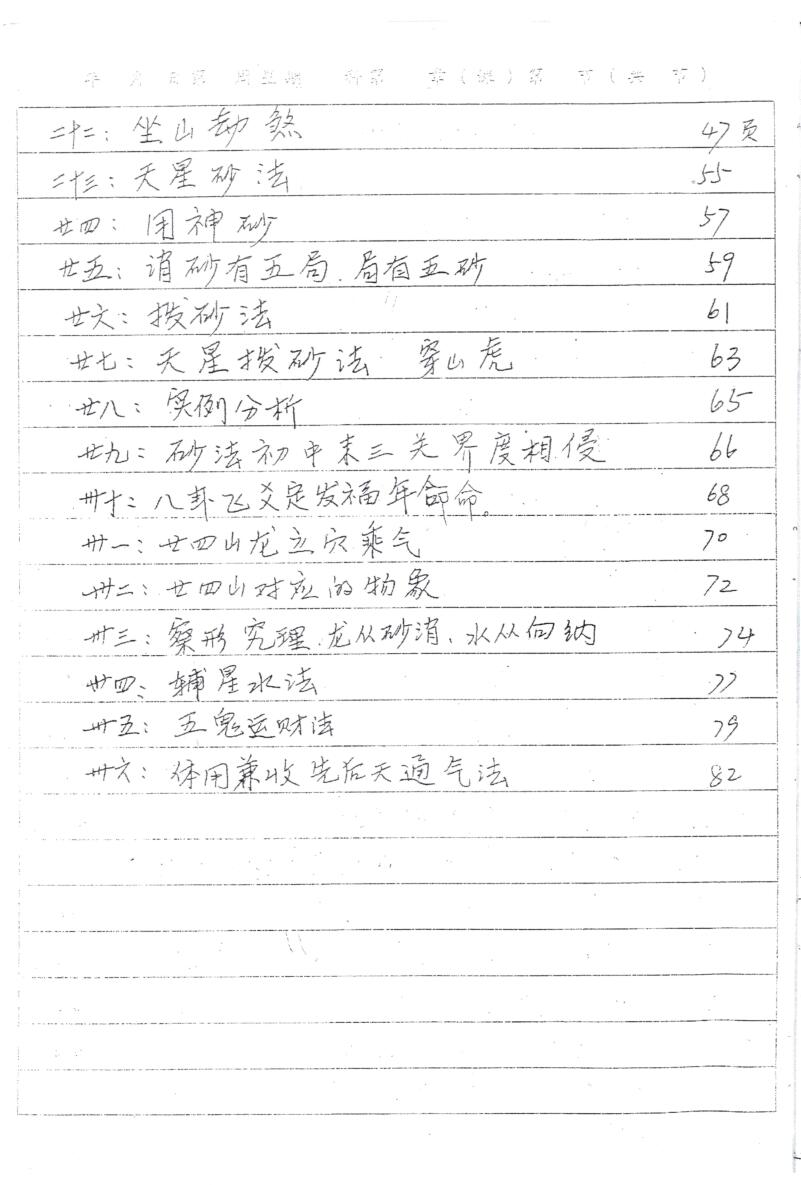 年 月 日第 周星期 科第 章(课)第 节(共 节)
二十二：坐山劫煞 47页
二十三：天星砂法 55
廿四：用神砂 57
廿五：消砂有五局、局有五砂 59
廿六：拨砂法 61
廿七：天星拨砂法 穿山虎 63
廿八：实例分析 65
廿九：砂法初中末三关界度相侵 66
卅十：八卦飞爻定发福年命命。 68
卅一：廿四山龙立穴乘气 70
卅二：廿四山对应的物象 72
卅三：察形究理、龙从砂消、水从向纳 74
卅四、辅星水法 77
卅五：五鬼运财法 79
卅六：体用兼收先后天通气法 82